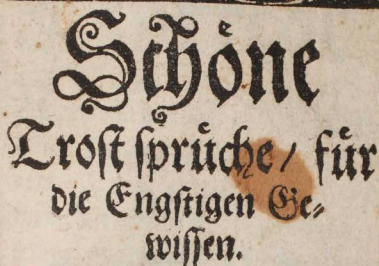 Schöne
Trost sprüche / für
die Engstigen Ge-
wissen.